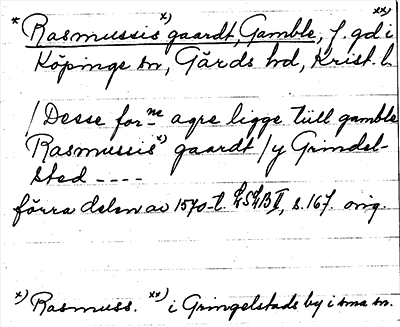 * Rasmussis x) gaardt, Gamble, f. gd i xx)
Köpinge sn, Gärds hd, Krist. l.
/ Desse for ne agre ligge tüll gamble
Rasmussis x) gaardt / y Grindel-
sted - - - -
förra delen av 1570-t. LSLB II, s. 167. orig.
x) Rasmuss. xx) i Gringelstads by i sma sn.